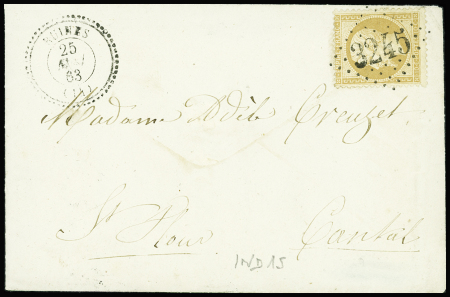 RUINES
25
63
(14)
3245
Madame Odile Creuzet
St Flour Cantal
IND 15